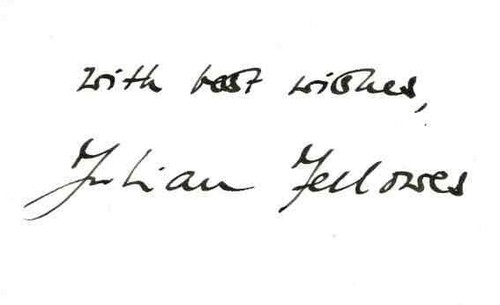 with best wishes,
Julian Fellowes